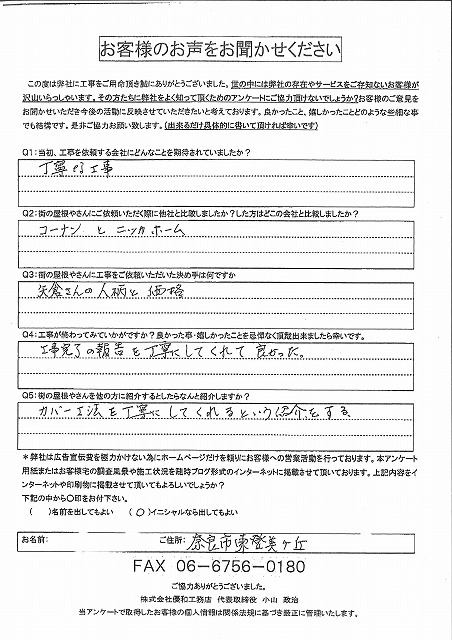 お客様のお声をお聞かせください
この度は弊社に工事をご用命頂き誠にありがとうございました。世の中には弊社の存在やサービスをご存知ないお客様が
沢山いらっしゃいます。その方たちに弊社をよく知って頂くためのアンケートにご協力頂けないでしょうか?お客様のご意見を
お聞かせいただき今後の活動に反映させていただきたいと考えております。良かったこと、嬉しかったことどのような些細な事
でも結構です。是非ご協力お願い致します。(出来るだけ具体的に書いて頂ければ幸いです)
Q1:当初、工事を依頼する会社にどんなことを期待されていましたか?
丁寧な工事
Q2:街の屋根やさんにご依頼いただく際に他社と比較しましたか?した方はどこの会社と比較しましたか?
コーナン と ニッカホーム
Q3:街の屋根やさんに工事をご依頼いただいた決め手は何ですか
矢倉さんの人柄と価格
Q4:工事が終わってみていかがですか?良かった事・嬉しかったことを忌憚なく頂戴出来ましたら幸いです。
工事完了の報告を丁寧にしてくれて良かった。
Q5:街の屋根やさんを他の方に紹介するとしたらなんと紹介しますか?
カバー工法を丁寧にしてくれるという紹介をする
*弊社は広告宣伝費を極力かけない為にホームページだけを頼りにお客様への営業活動を行っております。本アンケート
用紙またはお客様宅の調査風景や施工状況を随時ブログ形式のインターネットに掲載させて頂いております。上記内容をイ
ンターネットや印刷物に掲載させて頂いてもよろしいでしょうか?
下記の中から〇印をお付下さい。
( )名前を出してもよい (〇)イニシャルなら出してもよい
お名前: ご住所: 奈良市東登美ヶ丘
FAX 06-6756-0180
ご協力ありがとうございました。
株式会社優和工務店 代表取締役 小山 政治
当アンケートで取得したお客様の個人情報は関係法規に基づき厳正に管理いたします。